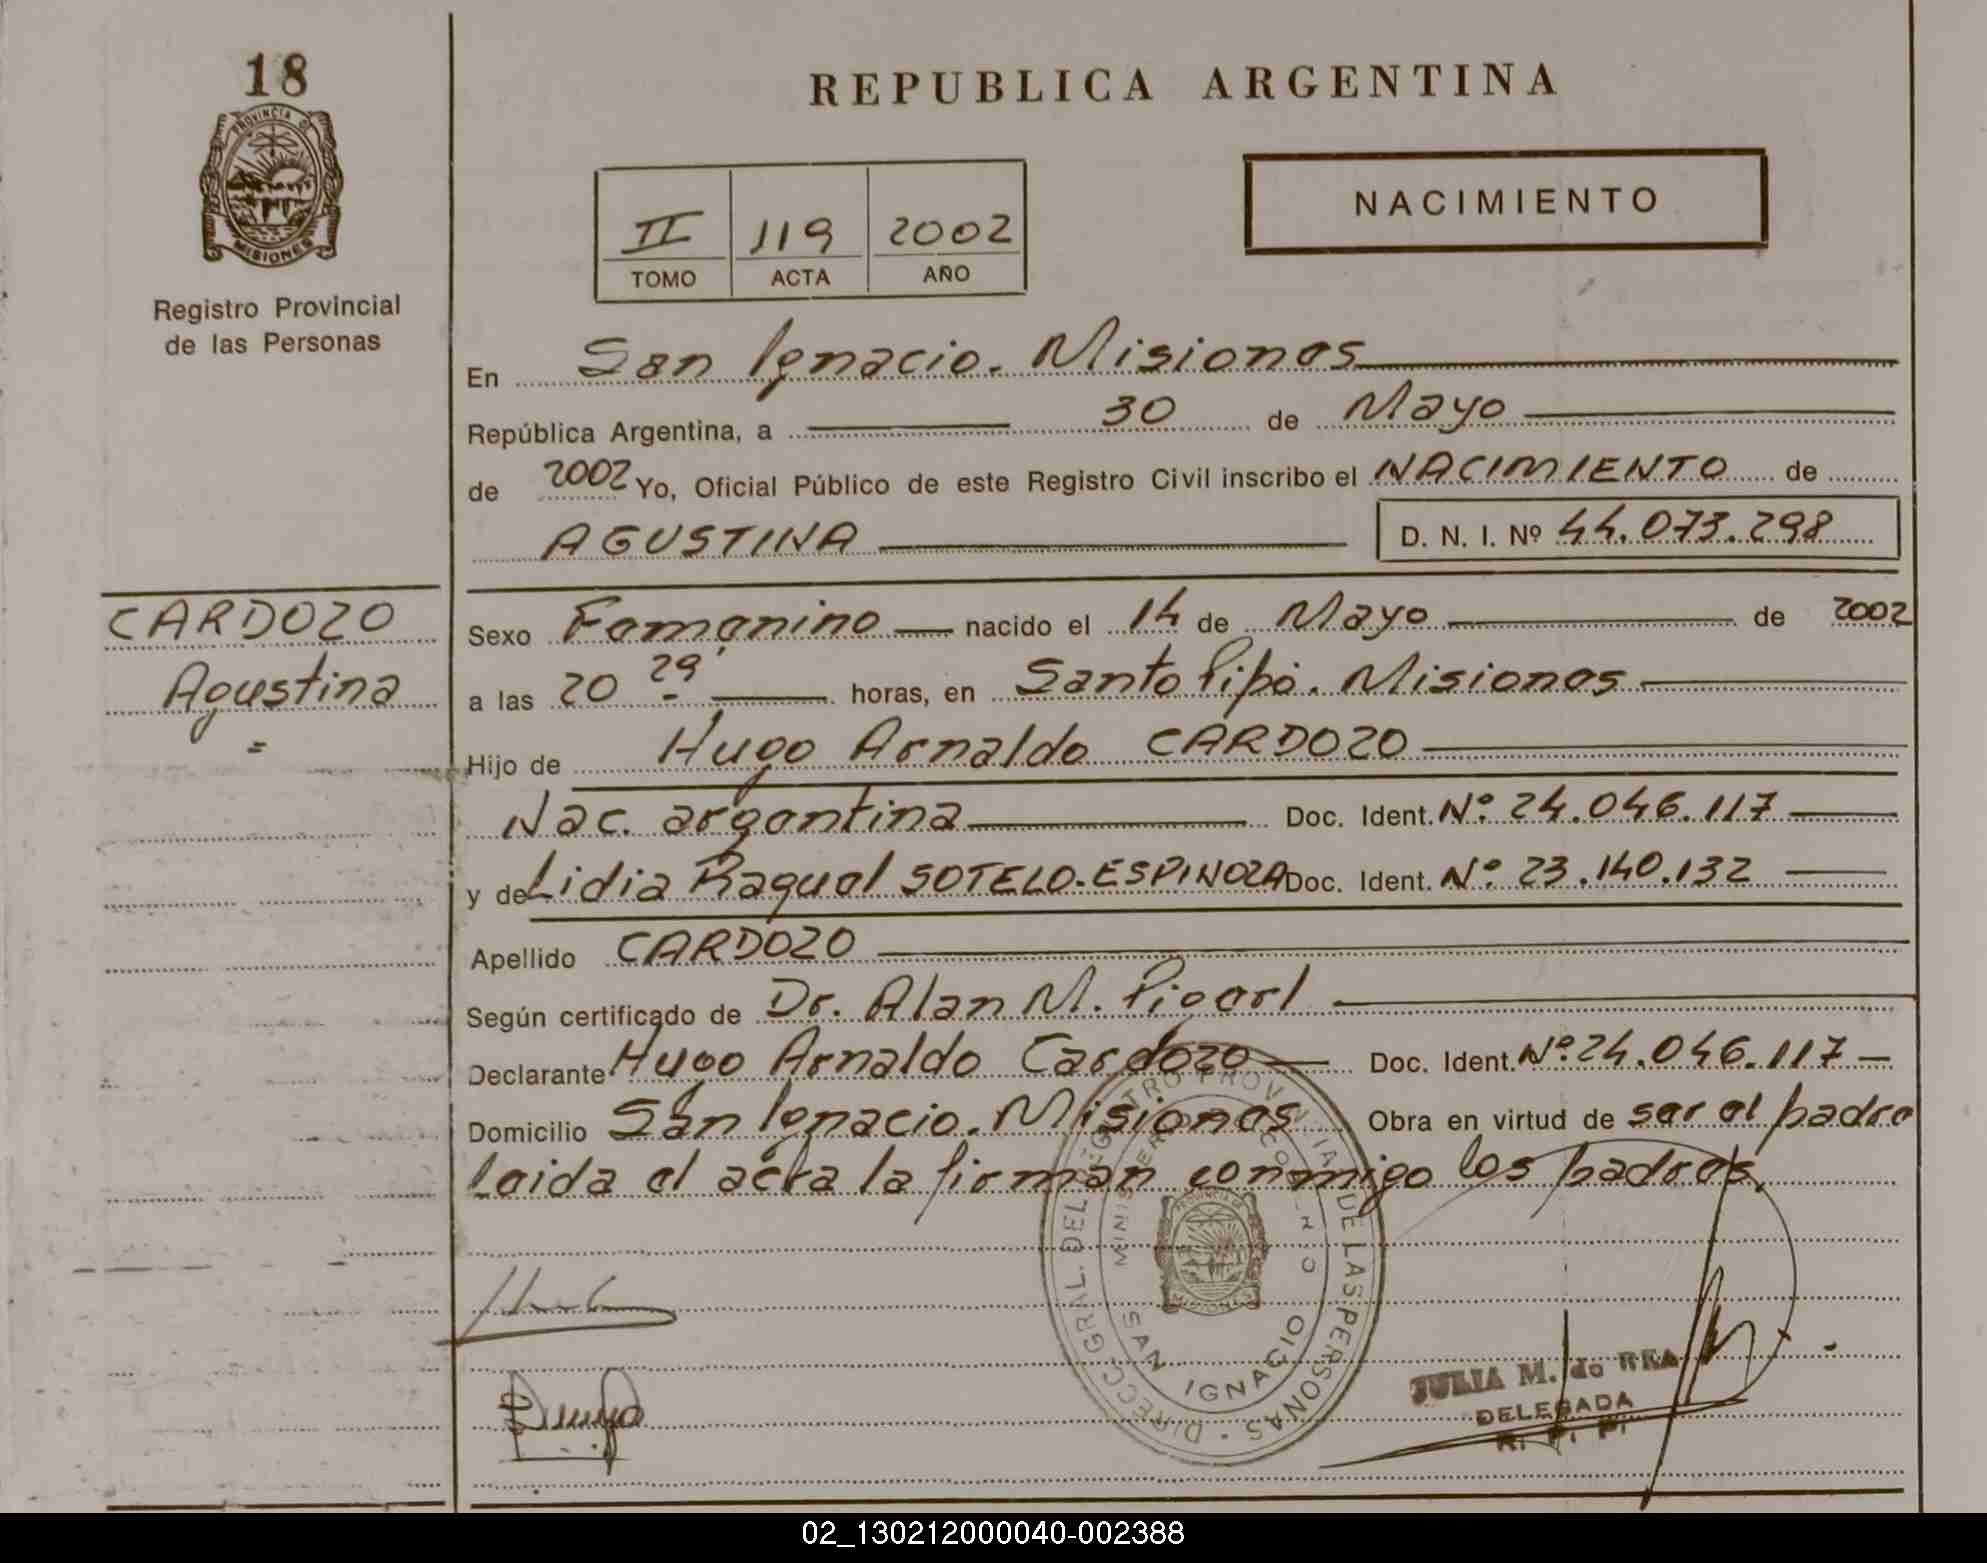 18
PROVINCIA DE
MISIONES
Registro Provincial
de las Personas
REPUBLICA ARGENTINA
NACIMIENTO
II 119 2002
TOMO ACTA AÑO
En San Ignacio. Misiones
República Argentina, a 30 de Mayo
de 2002 Yo, Oficial Público de este Registro Civil inscribo el NACIMIENTO de
AGUSTINA D. N. I. Nº 44.073.298
CARDOZO
Agustina
Sexo Femenino nacido el 14 de Mayo de 2002
a las 20 29 horas, en Santo Pipó. Misiones
Hijo de Hugo Arnaldo CARDOZO
Nac. argentina Doc. Ident. Nº 24.046.117
y de Lidia Raquel SOTELO-ESPINOZA Doc. Ident. Nº 23.140.132
Apellido CARDOZO
Según certificado de Dr. Alan M.
Declarante Hugo Arnaldo Cardozo Doc. Ident. Nº 24.046.117
Domicilio San Ignacio. Misiones Obra en virtud de ser el padre
Leida el acta la firman conmigo los padres.
DIRECC. GRAL. DEL REGISTRO PROVINCIAL DE LAS PERSONAS
SAN IGNACIO
JULIA M. de REA
DELEGADA
R. P. P.
02_130212000040-002388